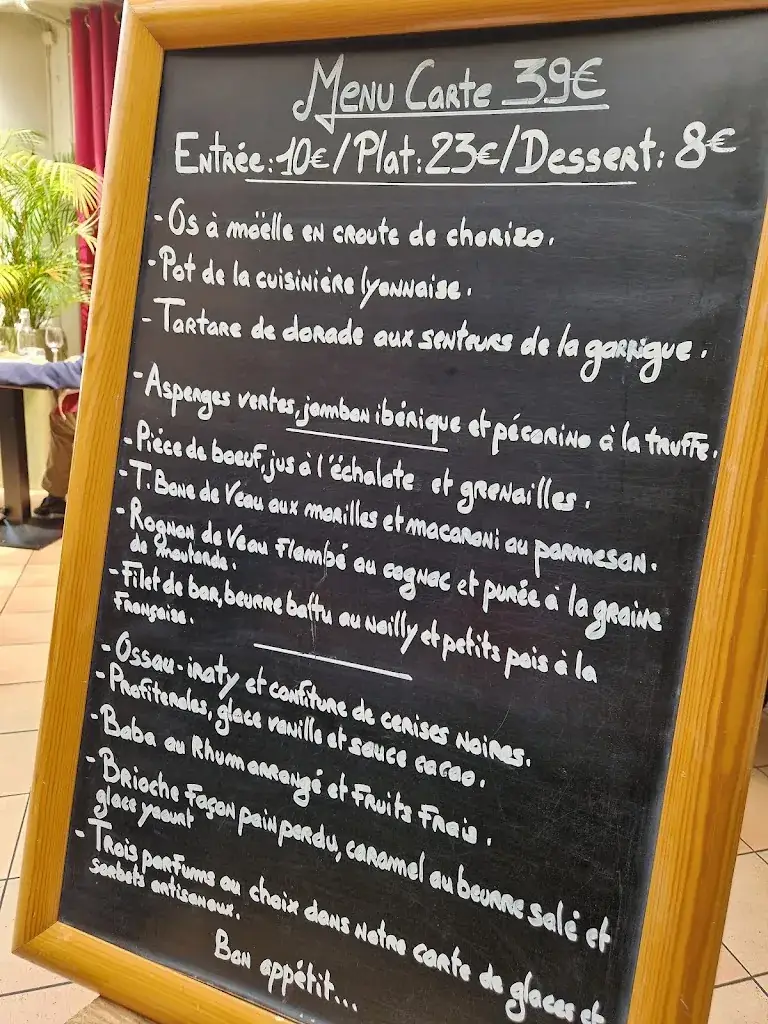 Menu Carte 39€
Entrée: 10€/Plat: 23€/Dessert: 8€
- Os à moëlle en croute de chorizo.
- Pot de la cuisinière lyonnaise.
- Tartare de dorade aux senteurs de la garrigue.
- Asperges vertes, jambon ibérique et pécorino à la truffe.
- Pièce de boeuf, jus à l'échalote et grenailles.
- T. Bone de Veau aux morilles et macaroni au parmesan.
- Rognon de Veau Flambé au cognac et purée à la graine
de moutarde.
- Filet de bar, beurre battu au Noilly et petits pois à la
Française.
- Ossau-iraty et confiture de cerises Noires.
- Profiteroles, glace vanille et sauce cacao.
- Baba au Rhum arrangé et Fruits Frais.
- Brioche Façon pain perdu, caramel au beurre salé et
glace yaourt
- Trois parfums au choix dans notre carte de glaces et
sorbets artisanaux.
Bon appétit...